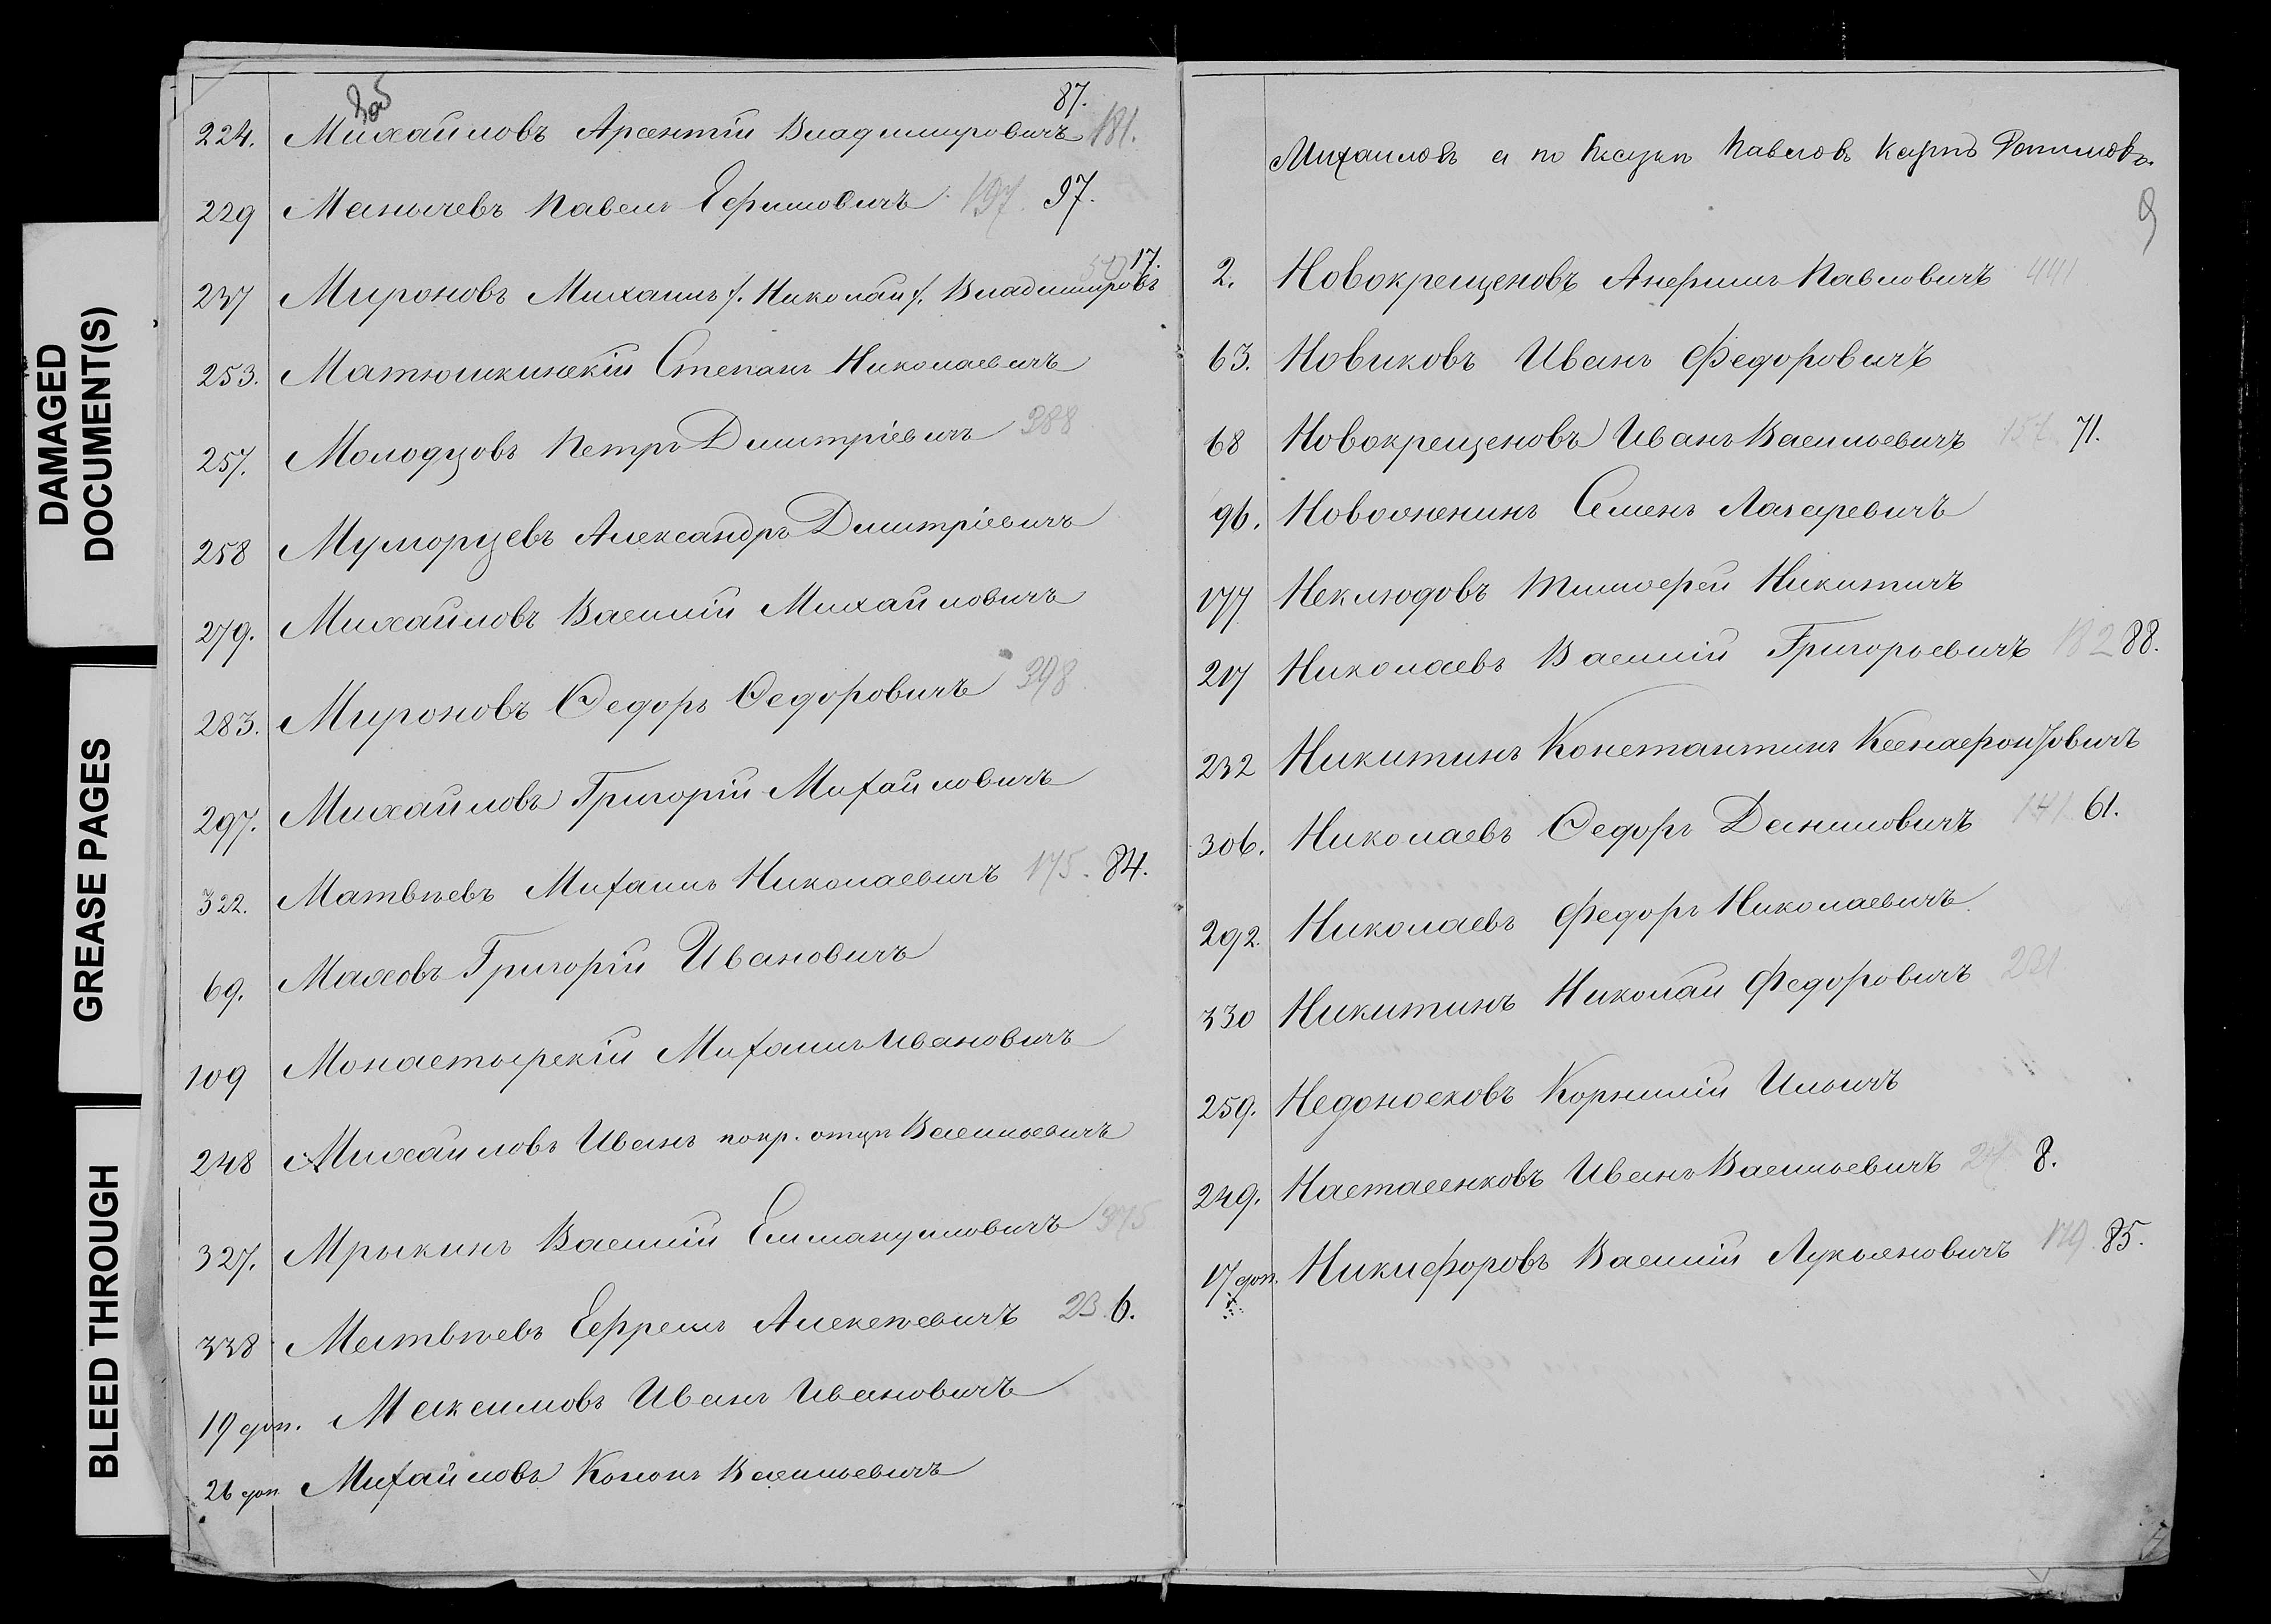 DAMAGED
DOCUMENT(S)
GREASE PAGES
BLEED THROUGH
87.
224. Михайловъ Арсентій Владимировичъ 181.
229 Манычевъ Павелъ Ефимовичъ 197. 97.
17.
237 Мироновъ Михаилъ Николай Владимировъ
253. Матюшкинскій Степанъ Николаевичъ
257. Молодцовъ Петръ Дмитріевичъ 288
258 Муморцевъ Александръ Дмитріевичъ
279. Михайловъ Василій Михайловичъ
283. Мироновъ Ѳедоръ Ѳедоровичъ 398
297. Михайловъ Григорій Михайловичъ
322. Матвѣевъ Михаилъ Николаевичъ 175. 84.
69. Маховъ Григорій Ивановичъ
109 Монастырскій Михаилъ Ивановичъ
248 Михайловъ Иванъ покр. отцу Васильевичъ
327. Мрыкинъ Василій Еммануиловичъ 375
338 Матвѣевъ Ефремъ Алексѣевичъ 23 6.
19 доп. Максимовъ Иванъ Ивановичъ
26 доп Михайловъ Кононъ Васильевичъ
Михаиловъ а по Павловъ Карпъ
9
2. Новокрещеновъ Анфимъ Павловичъ 441
63. Новиковъ Иванъ Федоровичъ
68 Новокрещеновъ Иванъ Васильевичъ 157 71.
96. Семенъ Лазаревичъ
177 Неклюдовъ Тимофей Никитичъ
217 Николаевъ Василій Григорьевичъ 182 88.
232 Никитинъ Константинъ Ксенофонтовичъ
306. Николаевъ Ѳедоръ Даниловичъ 141 61.
292. Николаевъ Федоръ Николаевичъ
330 Никитинъ Николай Федоровичъ 231
259. Недоносковъ Корнилій Ильичъ
249. Настасенковъ Иванъ Васильевичъ 8.
17 доп. Никифоровъ Василій Лукьяновичъ 179. 85.